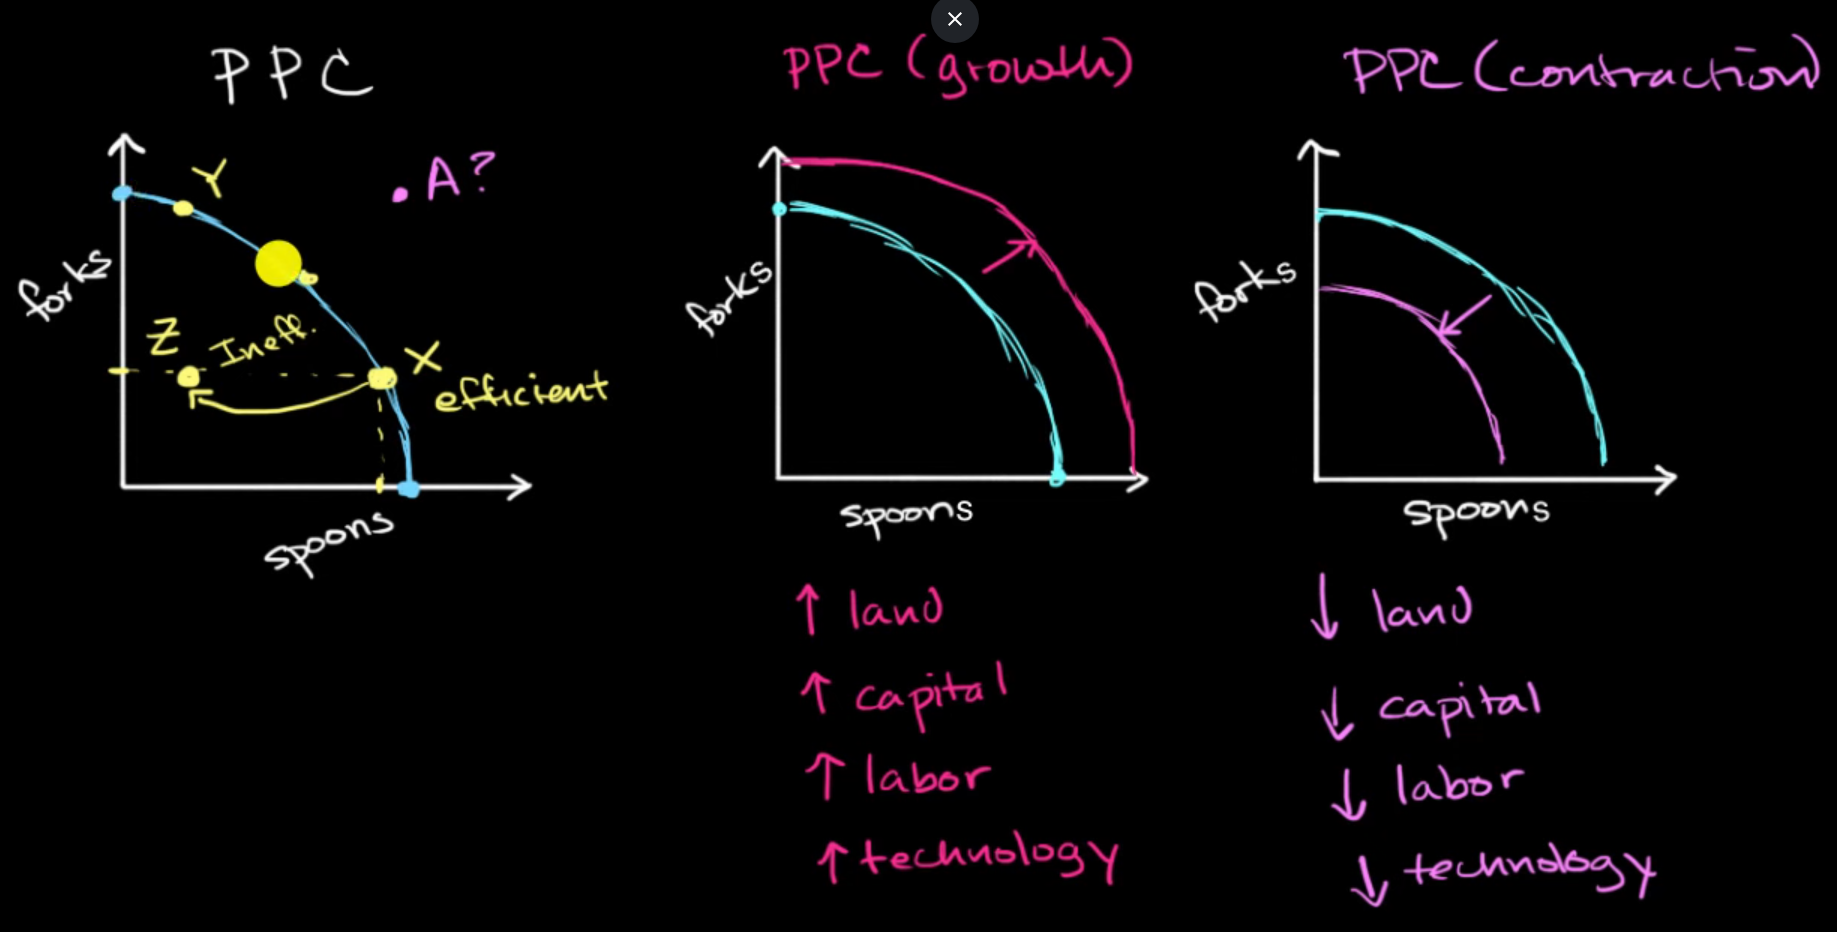 PPC
Y
A?
forks
Z
Ineff.
X
efficient
spoons
PPC (growth)
forks
spoons
↑ land
↑ capital
↑ labor
↑ technology
PPC (contraction)
forks
spoons
↓ land
↓ capital
↓ labor
↓ technology